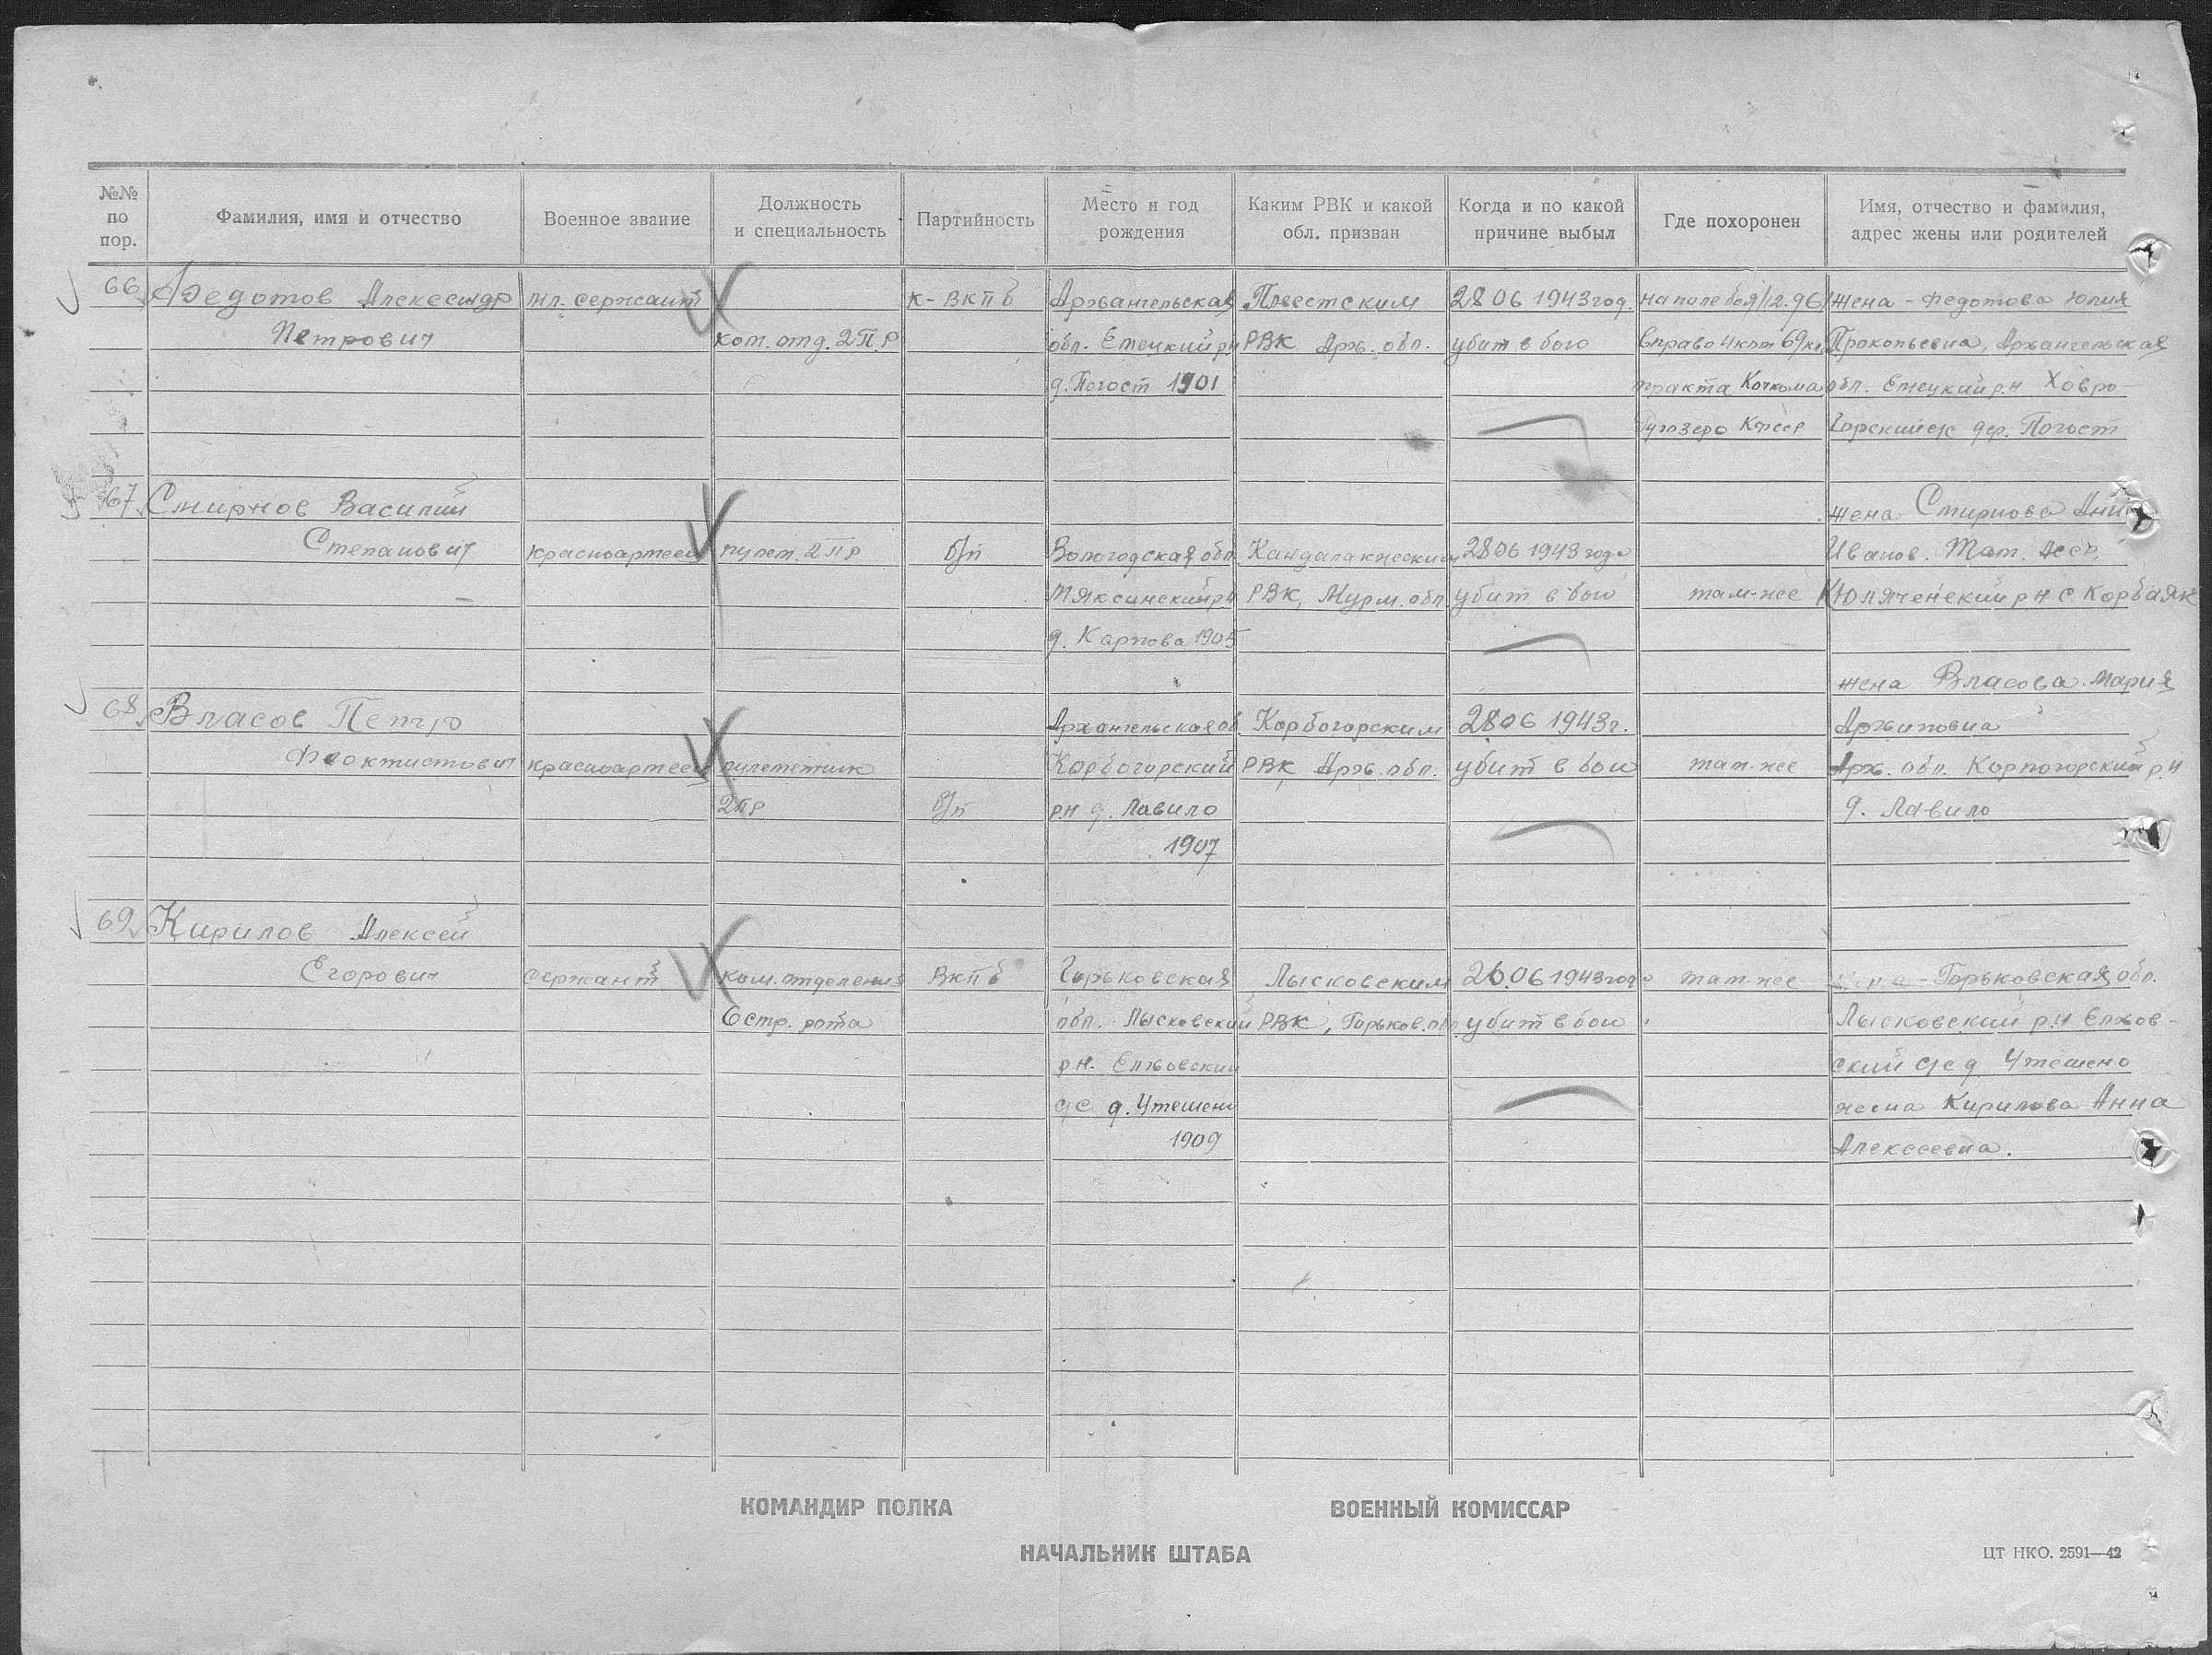 №№ по пор.
Фамилия, имя и отчество
Военное звание
Должность и специальность
Партийность
Место и год рождения
Каким РВК и какой обл. призван
Когда и по какой причине выбыл
Где похоронен
Имя, отчество и фамилия, адрес жены или родителей
66 Федотов Александр мл. сержант к-ВКПб Архангельская Плесетским 28 06 1943 год. на поле боя жена - Федотова Юлия
Петрович ком. отд. 2ПР обл. Емецкий рн РВК Арх. обл. убит в бою Вправо 4 км от 69 км Прокопьевна, Архангельская
д. Погост 1901 тракта Кочкома обл. Емецкий р.н Ховро-
Ругозеро Кфсср Горский с/с дер. Погост
67 Смирнов Василий жена Смирнова
Степанович красноармеец пулем. 2ПР б/п Вологодская обл. Кандалакшским 28 06 1943 года Иванов. Тат. Асср,
Мяксинский рн РВК, Мурм. обл. убит в бою там-же рн с Корбаяк
д. Карпова 1905
жена Власова Мария
68 Власов Петр Архангельская об. Карбогорским 28 06 1943 г. Архиповна
Феоктистович красноармеец пулеметчик Карбогорский РВК Арх. обл. убит в бою там-же Арх. обл. Карпогорский р.н
2ПР б/п рн д. Лавило д. Лавило
1907
69 Кирилов Алексей
Егорович сержант ком. отделения ВКПб Горьковская Лысковским 26.06 1943 года там-же - Горьковская обл.
6 стр. рота обл. Лысковский РВК, Горьков. обл. убит в бою Лысковский р.н Елхов-
рн. Елховский ский с/с д Утешено
с/с д. Утешено жена Кирилова Анна
1909 Алексеевна.
КОМАНДИР ПОЛКА
ВОЕННЫЙ КОМИССАР
НАЧАЛЬНИК ШТАБА
ЦТ НКО. 2591—42